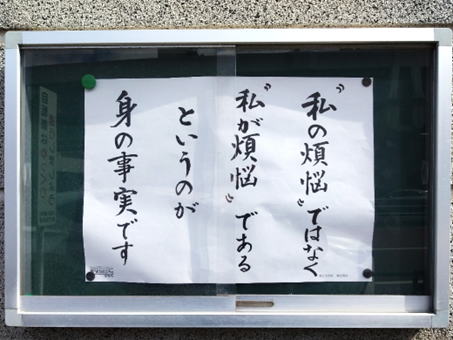 〝私の煩悩〟ではなく
〝私が煩悩〟である
というのが
身の事実です